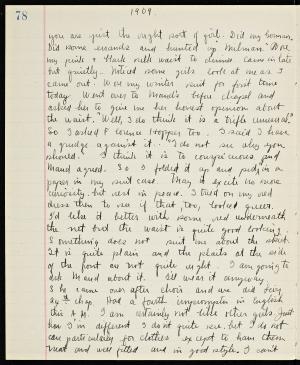 78
1909.
you are just the right sort of girl. Did my German.
Did some errands and hunted up Wore
my pink & black silk waist to dinner. Came in late
but quietly. Noticed some girls look at me as I
came out. Wore my winter suit for first time
today. Went over to Maud's before chapel and
asked her to give me her honest opinion about
the waist. "Well, I do think it is a trifle unusual."
So I asked Florence Hopper too. I said I have
a grudge against it. "I do not see why you
should. I think it is to conspicuous and
Maud agreed. So I folded it up and put it in
paper in my suit case. May it excite no more
curiosity but rest in peace. I tried on my red
dress then to see if that too, looked queer.
I'd like it better with some red underneath
the net but the waist is quite good looking.
Something does not suit me about the skirt.
It is quite plain and the plaits at the side
of the front are not quite right. I am going to
ask Maud about it. I'll wear it anyway.
she came over after choir and we did
chap. Had a fourth impromptu in English
this A.M. I am certainly not like other girls. Just
how I'm different I don't quite see, but I do not
care particularly for clothes except to have them
neat and well fitted and in good style. I can't